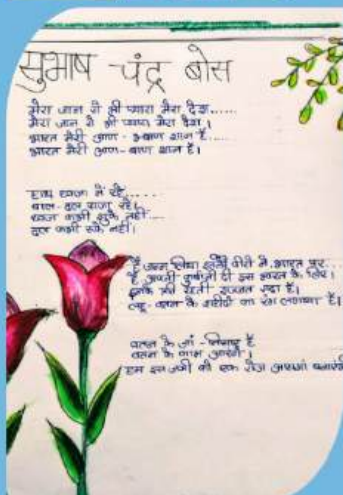 सुभाष चंद्र बोस
मेरा जान से भी प्यारा मेरा देश......
मेरा जान से भी प्यारा मेरा देश।
भारत मेरी आण - बाण शान है....
भारत मेरी आण - बाण शान है।
हाथ ध्वजा में रहे.....
बाल - दल सजा रहे।
ध्वज कभी झुके नहीं....
दल कभी रुके नहीं।
है जन्म लिया वीरों ने, भारत पर...
है अपनी कुर्बानी दी इस भारत के लिए।
इनके है।
लहू - वतन के शहीदों का रंग लगाया है।
वतन के जां - निसार है
वतन के काम आएंगे।
हम इस जमीं को एक रोज आसमां बनाएंगे